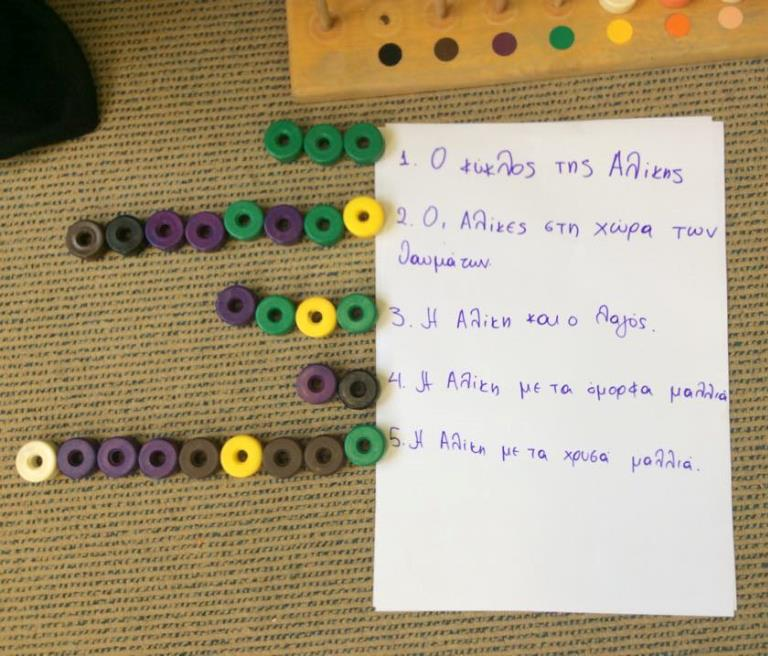 1. Ο κύκλος της Αλίκης
2. Ο, Αλίκες στη χώρα των
θαυμάτων
3. Η Αλίκη και ο λαγός.
4. Η Αλίκη με τα όμορφα μαλλιά
5. Η Αλίκη με τα χρυσά μαλλιά.